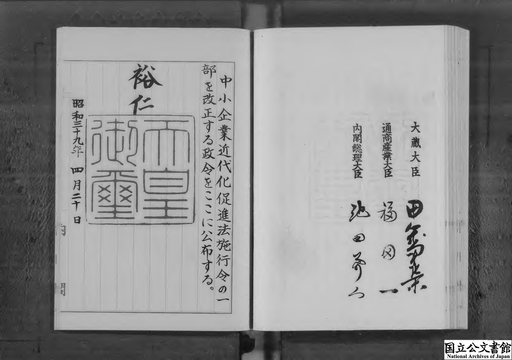 大蔵大臣 田中角榮
通商産業大臣 福田一
内閣総理大臣 池田勇人
中小企業近代化促進法施行令の一
部を改正する政令をここに公布する。
裕仁
天皇
御璽
昭和三十九年四月二十日
内閣
国立公文書館
National Archives of Japan